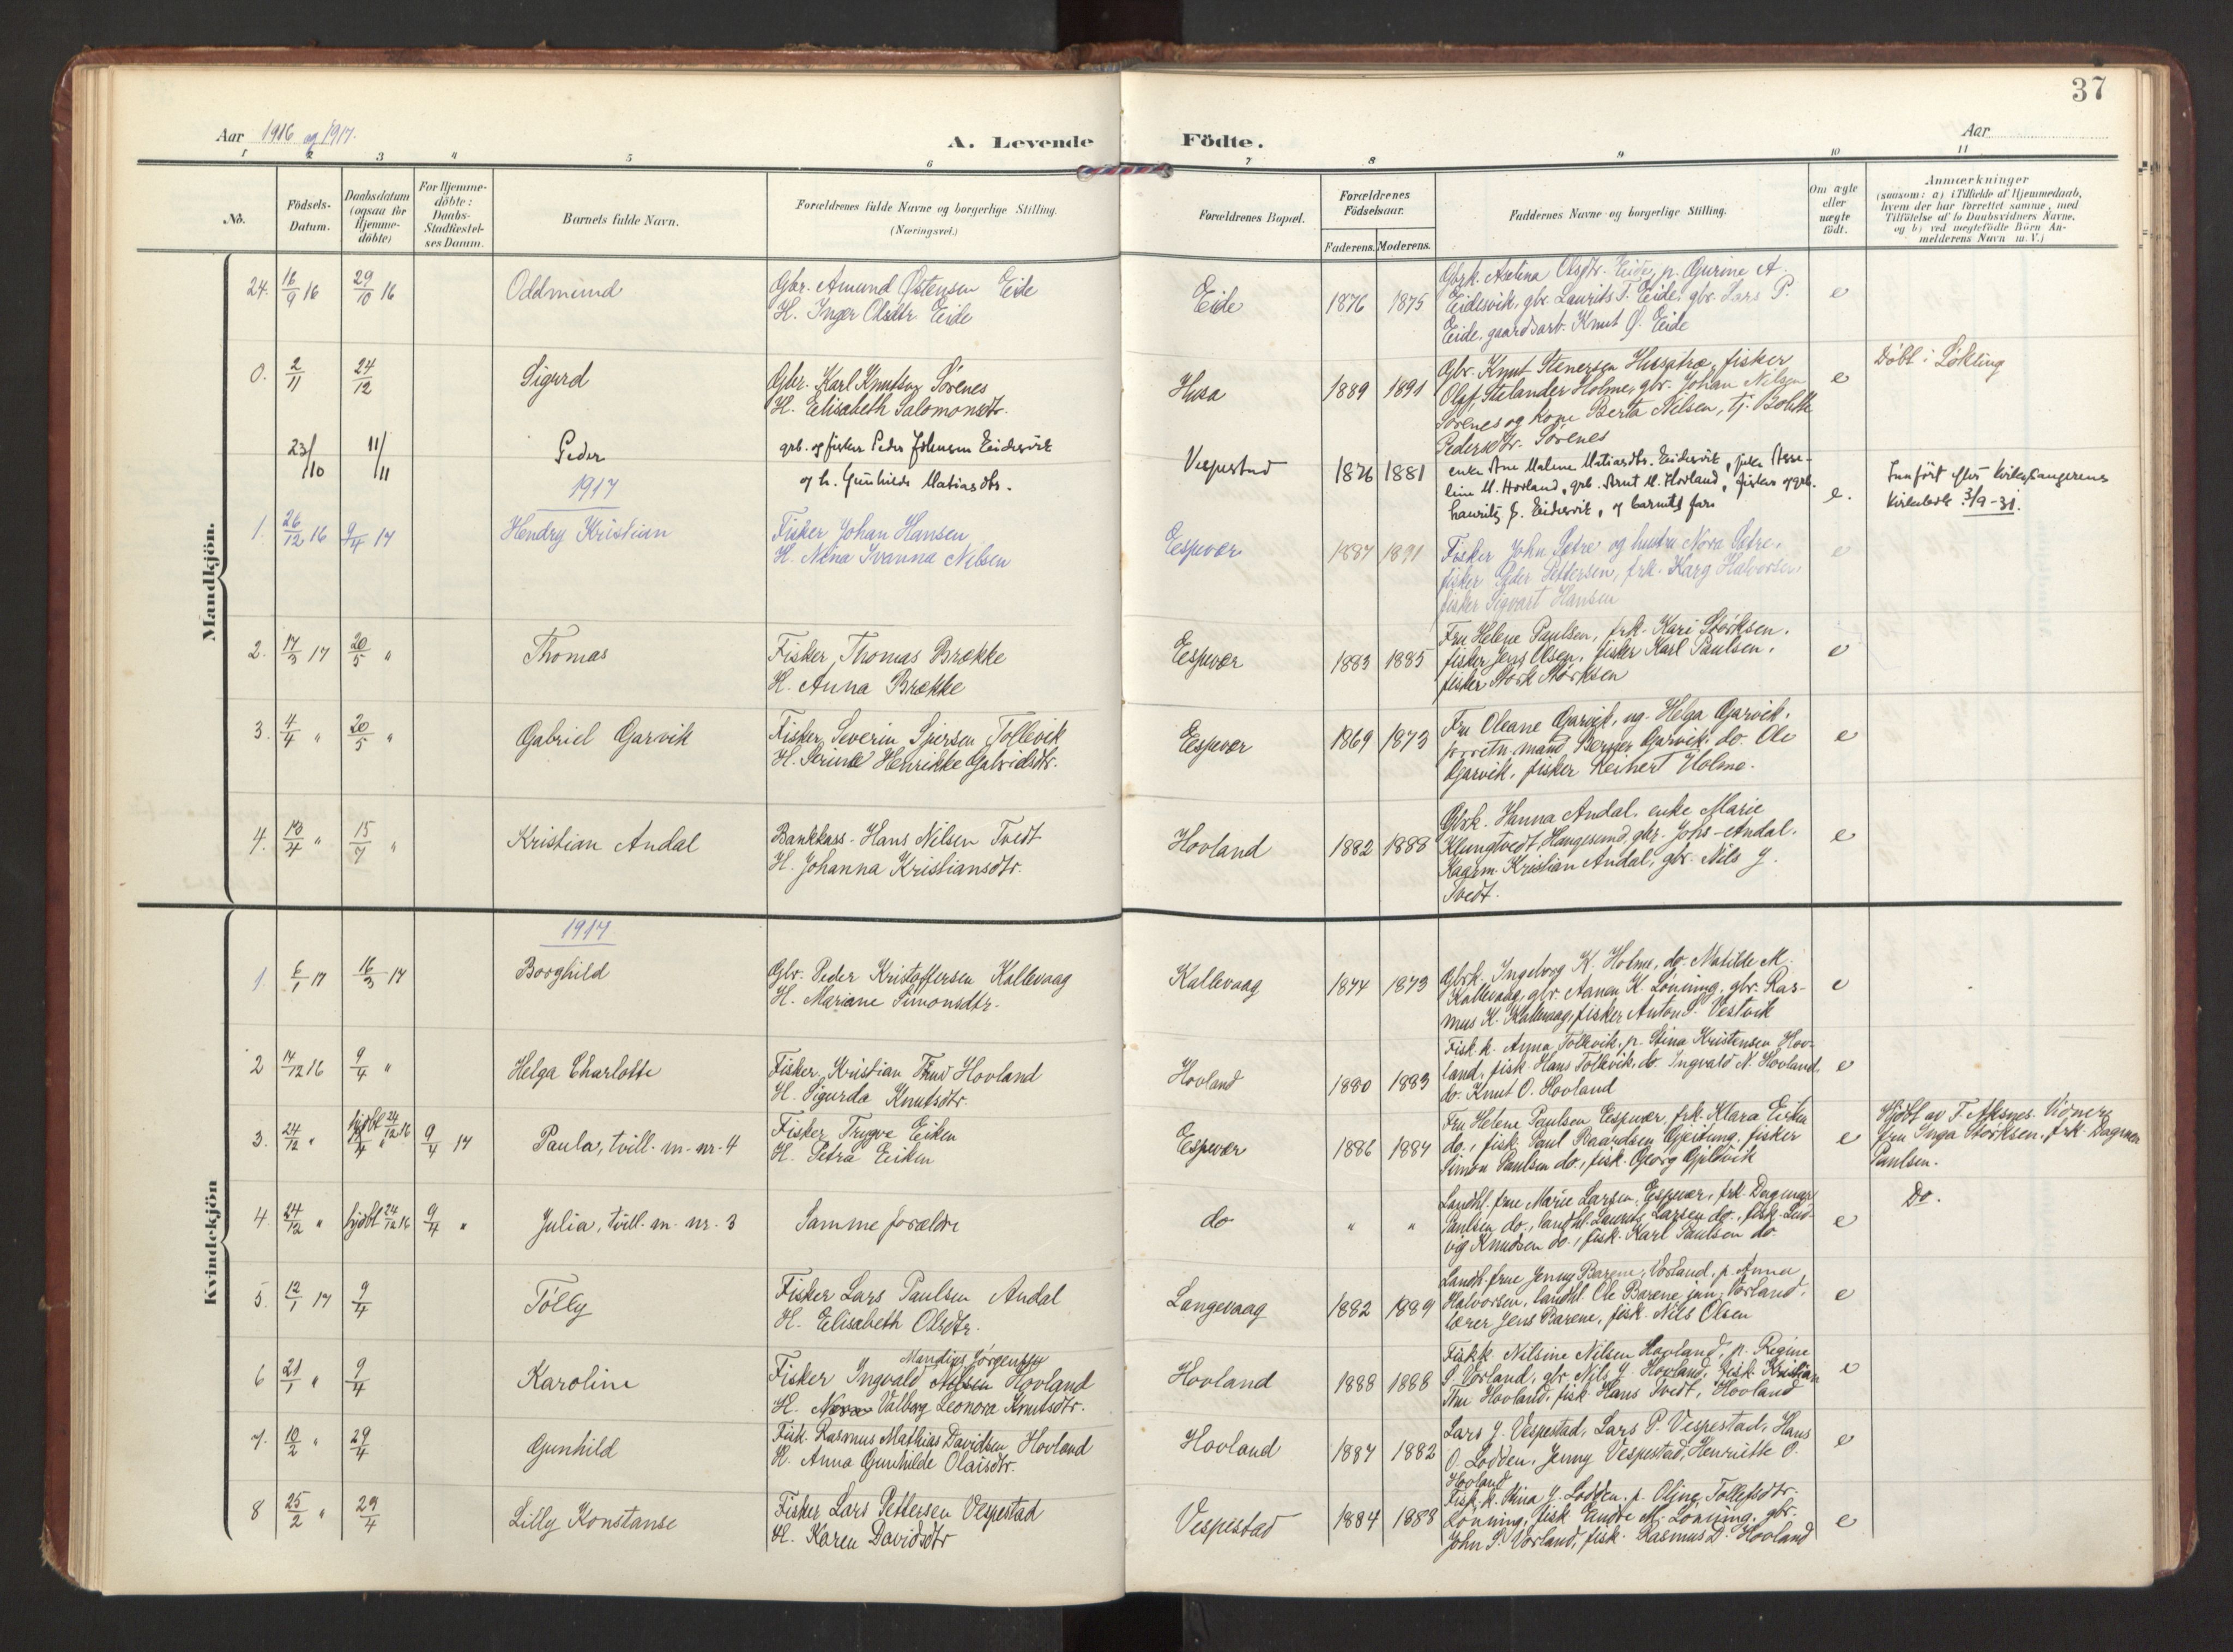 37
Aar 1916 og 1917.
A. Levende Födte.
Aar
1 2 3 4 5 6 7 8 9 10 11
No.
Födsels-Datum.
Daabsdatum (ogsaa for Hjemme-döbte)
For Hjemme-döbte: Daabs-Stadfæstel-ses Datum.
Barnets fulde Navn.
Forældrenes fulde Navne og borgerlige Stilling. (Næringsvei.)
Forældrenes Bopæl.
Forældrenes Födselsaar.
Faderens. Moderens.
Faddernes Navne og borgerlige Stilling.
Om ægte eller uægte födt.
Anmærkninger
(saasom: a) i Tilfælde af Hjemmedaab,
hvem der har forrettet samme, med
Tilföielse af to Daabsvidners Navne,
og b) ved uægtefödte Börn An-
melderens Navn m. V.)
Mandkjön.
24. 16/9 16 29/10 16 Oddmund
Gbr. Amund Østensen Eide
H. Inger Olsdtr. Eide
Eide 1876 1875
Gbrk. Axelina Olsdtr. Eide, p. Gurine A.
Eidesvik, gbr. Laurits T. Eide, gbr. Lars P.
Eide, gaardsarb. Knut Ø. Eide
e
0. 2/11 24/12 Sigurd
Gbr. Karl Knutsen Sørenes
H. Elisabeth Salomonsdtr.
Husa 1889 1891
Gbr. Knut Stenersen Husatræ, fisker
Olaf Stelander Holme, gbr. Johan Nilsen
Sørenes og Kone Berta Nilsen, tj. Bolette
Pedersdtr. Sørenes
e
Döbt i Løkling
23/10 11/11 Peder
grb. og fisker Peder Johnsen Eidesvik
og h. Gunhilde Matiasdtr.
Vespestad 1876 1881
enke Ane Malene Matiasdtr. Eidesvik, pike Asse-
line M. Hovland, grb. Arnt M. Hovland, fisker og grb.
Lauritz J. Eidesvik, og barnets far
e.
Innfört efter kirkesangerens
kirkebok 3/9-31.
1917
1. 26/12 16 9/4 17 Hendry Kristian
Fisker Johan Hansen
H. Nina Ivanna Nilsen
Espevær 1887 1891
Fisker John Sætre og hustru Nora Sætre,
fisker Peder Pettersen, frk. Karg Halvorsen,
fisker Sigvart Hansen
e
2. 17/3 17 20/5 " Thomas
Fisker Thomas Brække
H. Anna Brække
Espevær 1883 1885
Fru Helene Paulsen, frk. Kari Størksen,
fisker Jens Olsen, fisker Karl Paulsen,
fisker Størk Størksen
e
3. 4/4 " 20/5 " Gabriel Garvik
Fisker Severin Sjursen Tollevik
H. Serine Henrikke Gabrielsdtr.
Espevær 1869 1873
Fru Oleane Garvik, ug. Helga Garvik,
forretn. mand Berner Garvik, do. Ole
Garvik, fisker Reinert Holme.
e
4. 13/4 " 15/7 " Kristian Andal
Bankkass. Hans Nilsen Tvedt
H. Johanna Kristiansdtr.
Hovland 1882 1888
Gbrk. Hanna Andal, enke Marie
Klungtvedt, Haugesund, gbr. Johs Andal,
Kagerm. Kristian Andal, gbr. Nils J.
Tvedt.
e
Kvindekjön
1917
1. 6/1 17 16/3 17 Borghild
Gbr. Peder Kristoffersen Kallevaag
H. Mariane Simonsdtr.
Kallevaag 1874 1873
Gbrk. Ingeborg K. Holme, do. Matilde M.
Kallevaag, gbr. Aanen K. Lönning, gbr. Ras-
mus K. Kallevaag, fisker Anton S. Vestvik
e
2 17/12 16 9/4 " Helga Charlotte
Fisker Kristian Thuv Hovland
H. Sigurda Knutsdtr.
Hovland 1880 1883
Fisk.k. Anna Tollevik, p. Stina Kristensen Hov-
land, fisk. Hans Tollevik, do. Ingvald N. Hovland,
do. Knut O. Hovland
e
3. 24/12 " hjdbt 24/12 16 9/4 17 Paula, tvill. m. nr. 4
Fisker Trygve Eiken
H. Petra Eiken
Espevær 1886 1884
Fru Helene Paulsen Espevær, frk. Klara Eiken
do., fisk. Paul Raardsen Gjeitung, fisker
Simon Paulsen do., fisk. Georg Gjilsvik
e
Hjdbt av T. Aksnes. Vidner,
fru Inga Størksen, frk. Dagmar
Paulsen.
4. 24/12 " hjdbt 24/12 16 9/4 " Julia, tvill. m. nr. 3
Samme forældre
do " "
Landhl. frue Marie Larsen, Espevær, frk. Dagmar
Paulsen do., landhl. Laurits Larsen do., fisk. Lud-
vig Knudsen do., fisk. Karl Paulsen do.
e
Do.
5. 12/1 17 9/4 Tölly
Fisker Lars Paulsen Andal
H. Elisabeth Olsdtr.
Langevaag 1882 1889
Landh. frue Jenny Barene, Vorland, p. Anna
Halvorsen, landhl. Ole Barene jun. Vorland,
lærer Jens Barene, fisk. Nils Olsen
e
6 21/1 " 9/4 Karoline
Mandius Jørgensen
Fisker Ingvald Hovland
H. Nora Valborg Leonora Knutsdtr.
Hovland 1888 1888
Fiskk. Nilsine Nilsen Hovland, p. Regine
S. Vorland, gbr. Nils J. Hovland, fisk. Kristian
Thu Hovland, fisk. Hans Tvedt, Hovland
e
7. 10/2 " 29/4 Gunhild
Fisk. Rasmus Mathias Davidsen Hovland
H. Anna Gunhilde Olaisdtr.
Hovland 1887 1882
Lars J. Vespestad, Lars P. Vespestad, Hans
O. Lodden, Jenny Vespestad, Henriette O.
Hovland
e
8 25/2 " 29/4 Lilly Konstanse
Fisker Lars Pettersen Vespestad
H. Karen Davidsdtr
Vespestad 1884 1888
Fisk.k. Stina J. Lodden, p. Oline Tollefsdtr.
Lönning, fisk. Endre M. Lönning, gbr.
John P. Vorland, fisk. Rasmus D. Hovland
e